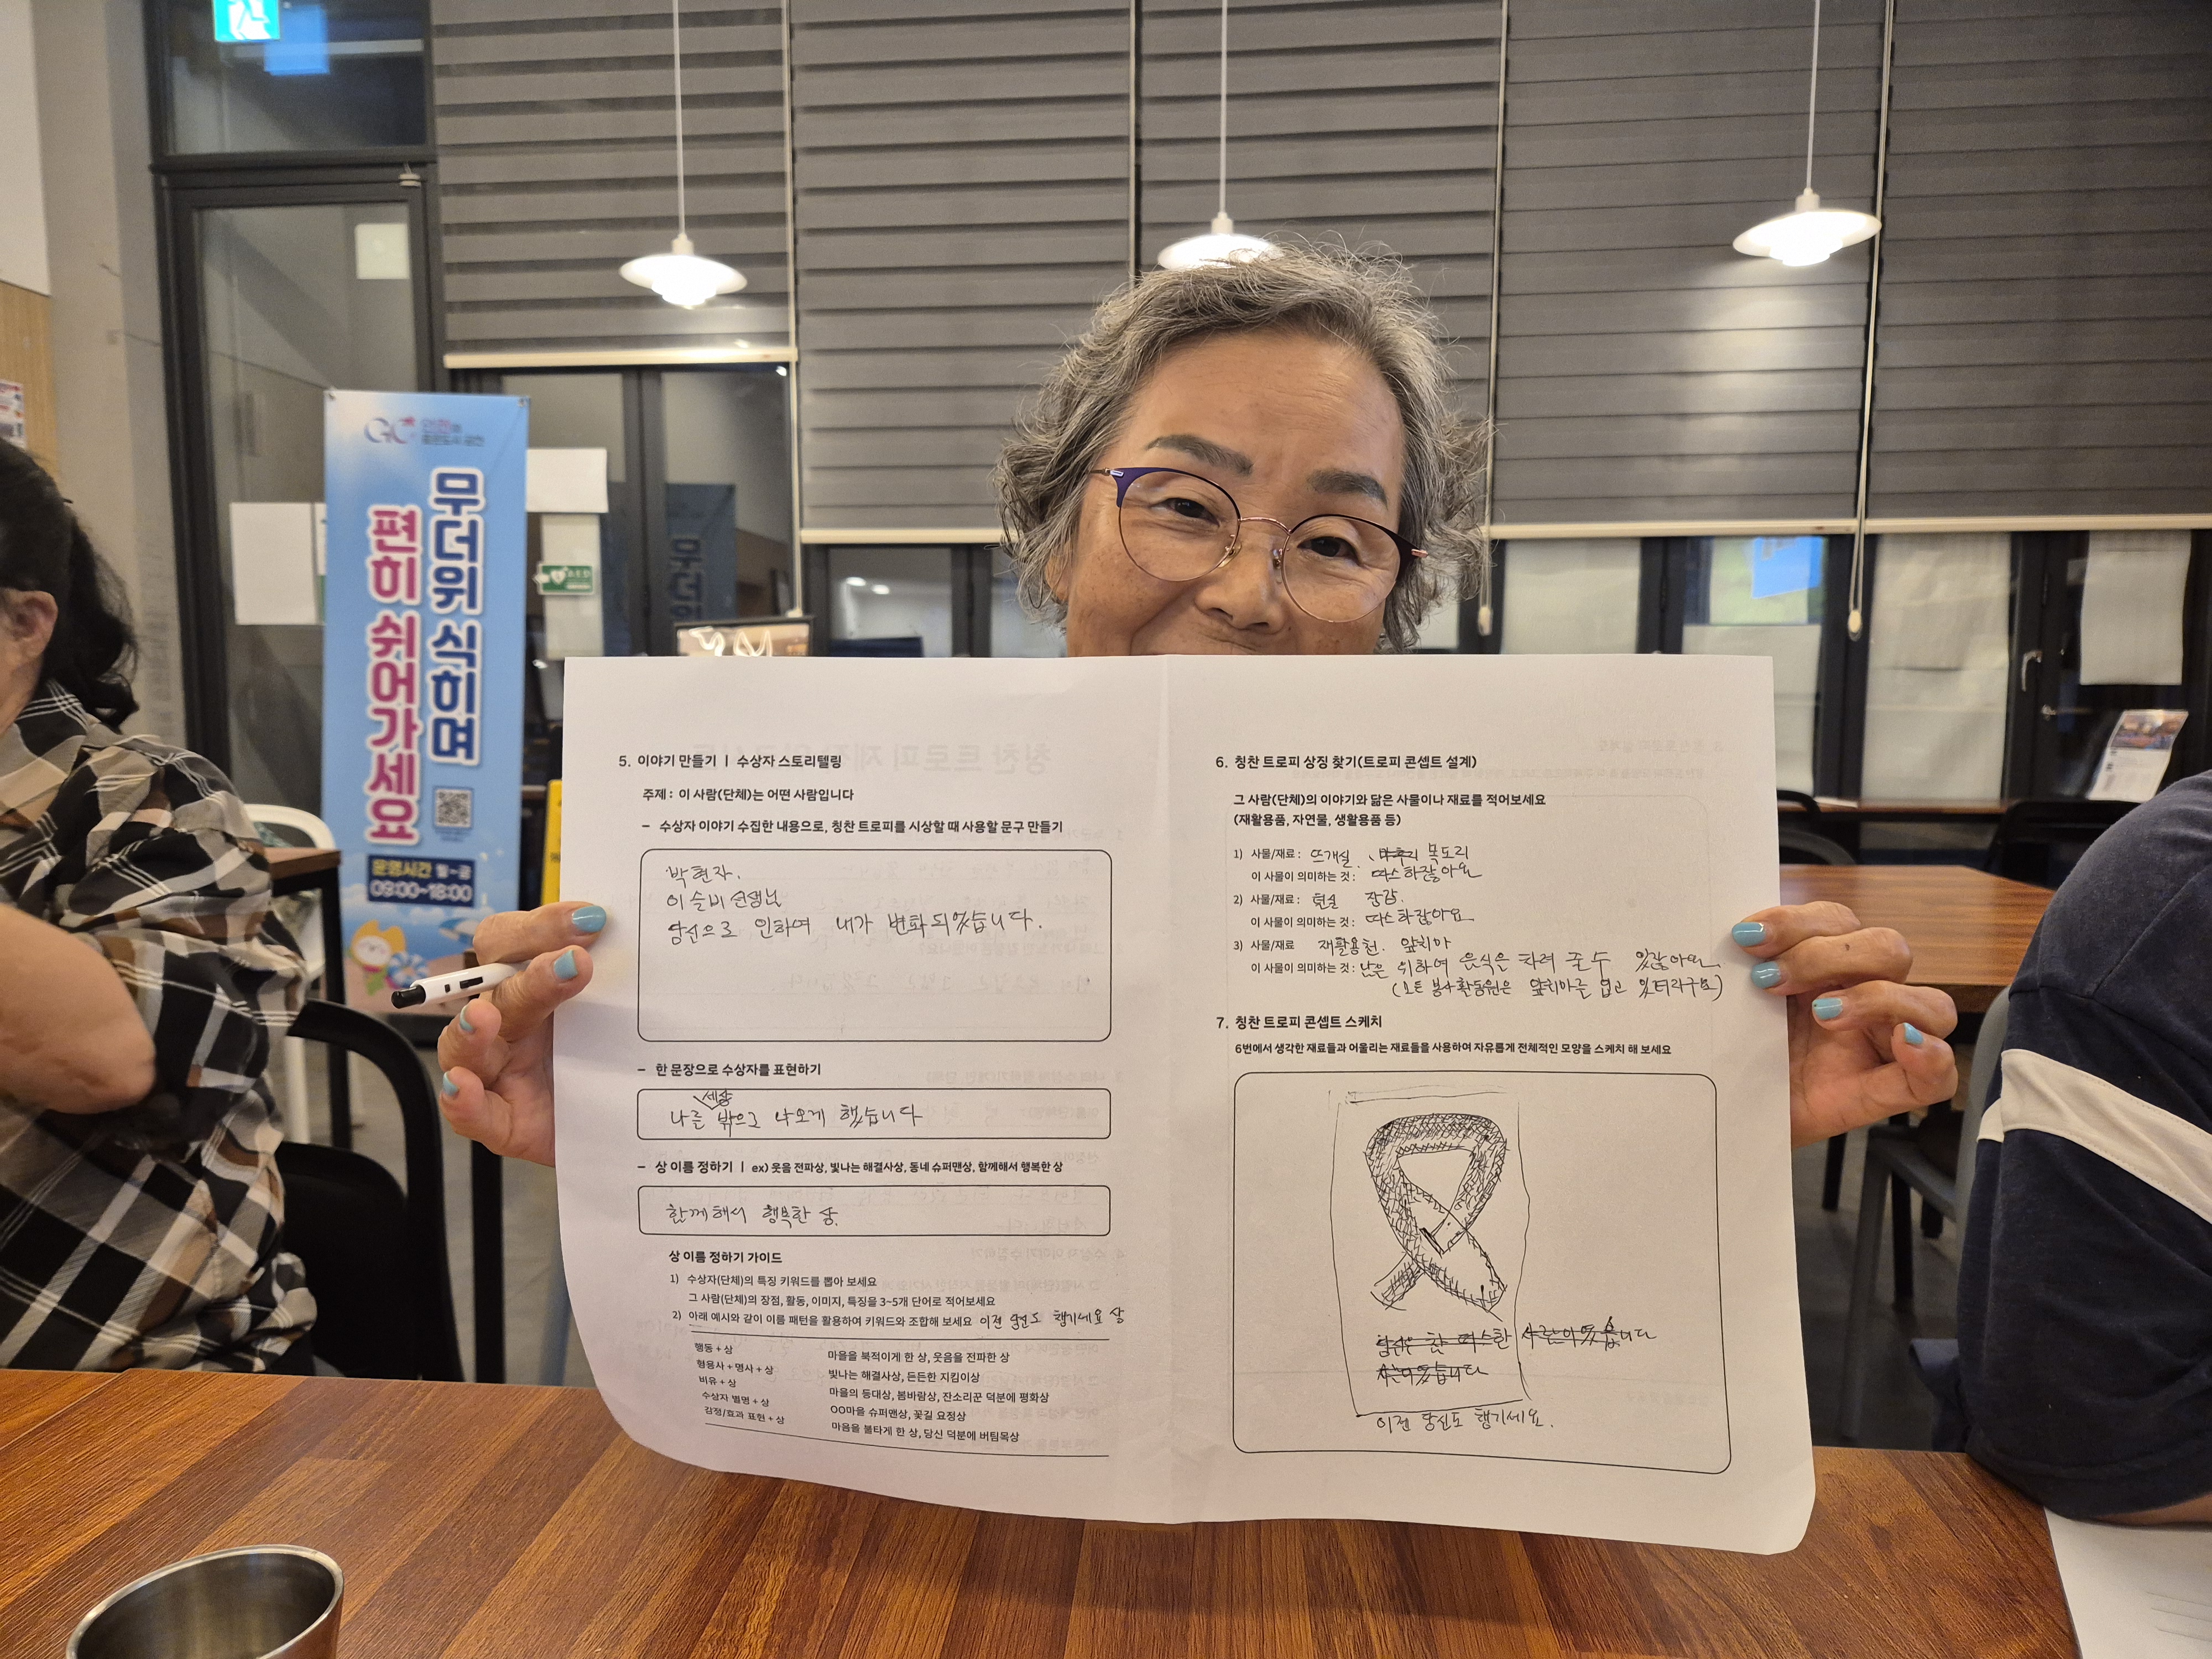 무더위 식히며
편히 쉬어가세요
운영시간 월~금
09:00~18:00
5. 이야기 만들기 | 수상자 스토리텔링
주제 : 이 사람(단체)는 어떤 사람입니다
– 수상자 이야기 수집한 내용으로, 칭찬 트로피를 시상할 때 사용할 문구 만들기
박현자.
이슬비 선생님
당신으로 인하여 내가 변화되었습니다.
– 한 문장으로 수상자를 표현하기
세상
나를 밖으로 나오게 했습니다
– 상 이름 정하기 | ex) 웃음 전파상, 빛나는 해결사상, 동네 슈퍼맨상, 함께해서 행복한 상
함께해서 행복한 상.
상 이름 정하기 가이드
1) 수상자(단체)의 특징 키워드를 뽑아 보세요
그 사람(단체)의 장점, 활동, 이미지, 특징을 3~5개 단어로 적어보세요
2) 아래 예시와 같이 이름 패턴을 활용하여 키워드와 조합해 보세요 이젠 당신도 챙기세요 상
행동 + 상 마을을 북적이게 한 상, 웃음을 전파한 상
형용사 + 명사 + 상 빛나는 해결사상, 든든한 지킴이상
비유 + 상 마을의 등대상, 봄바람상, 잔소리꾼 덕분에 평화상
수상자 별명 + 상 OO마을 슈퍼맨상, 꽃길 요정상
감정/효과 표현 + 상 마음을 불타게 한 상, 당신 덕분에 버팀목상
6. 칭찬 트로피 상징 찾기(트로피 콘셉트 설계)
그 사람(단체)의 이야기와 닮은 사물이나 재료를 적어보세요
(재활용품, 자연물, 생활용품 등)
1) 사물/재료 : 뜨개실. 목도리
이 사물이 의미하는 것 : 따스하잖아요
2) 사물/재료 : 털실 장갑
이 사물이 의미하는 것 : 따스하잖아요
3) 사물/재료 재활용천. 앞치마
이 사물이 의미하는 것 : 남을 위하여 음식을 차려 줄 수 있잖아요
(모든 봉사활동원은 앞치마를 입고 있더라구요)
7. 칭찬 트로피 콘셉트 스케치
6번에서 생각한 재료들과 어울리는 재료들을 사용하여 자유롭게 전체적인 모양을 스케치 해 보세요
이젠 당신도 챙기세요.